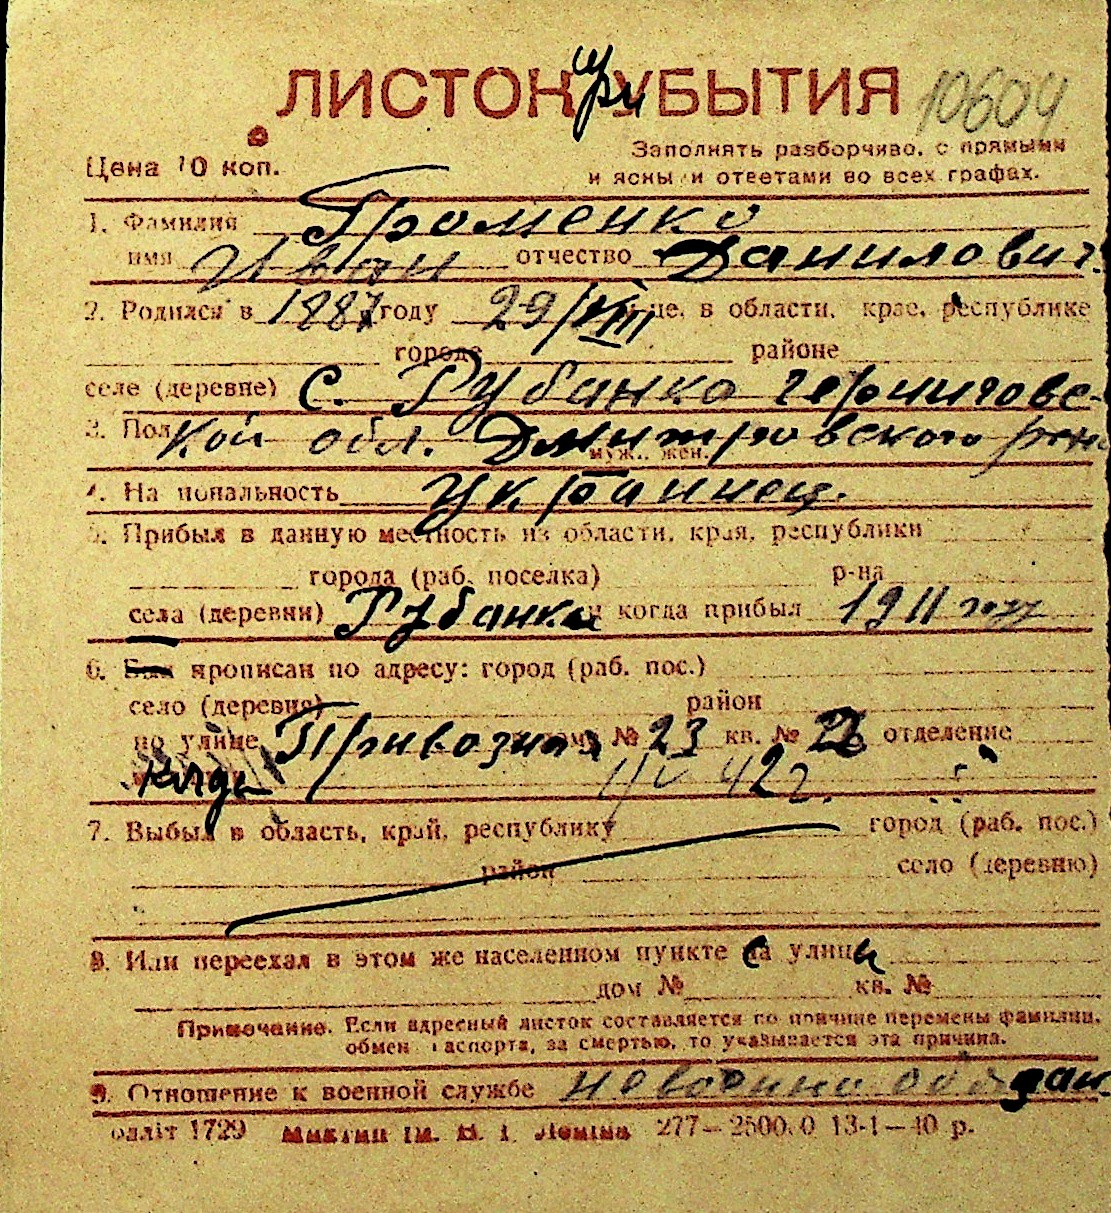 ЛИСТОК при УБЫТИЯ 10604
Цена 10 коп.
Заполнять разборчиво, с прямыми
и ясными ответами во всех графах.
1. Фамилия Громенко
имя Иван отчество Данилович
2. Родился в 1887 году 29/VIII це, в области, крае, республике
городе районе
селе (деревне) с. Рубанка Черниговс-
3. Пол кой обл. Дмитровского р-на
муж., жен.
4. Национальность украинец.
5. Прибыл в данную местность из области, края, республики
города (раб. поселка) р-на
села (деревни) Рубанка и когда прибыл 1911 году
6. Был прописан по адресу: город (раб. пос.)
село (деревня) район
по улице Привозная дом № 23 кв. № 2 отделение
42 г.
7. Выбыл в область, край, республику город (раб. пос.)
район село (деревню)
8. Или переехал в этом же населенном пункте с улицы
дом № кв. №
Примечание. Если адресный листок составляется по причине перемены фамилии,
обмен паспорта, за смертью, то указывается эта причина.
9. Отношение к военной службе невоеннообязан
одліт 1729 ім. В. І. Леніна 277—2500.0 13-1—40 р.